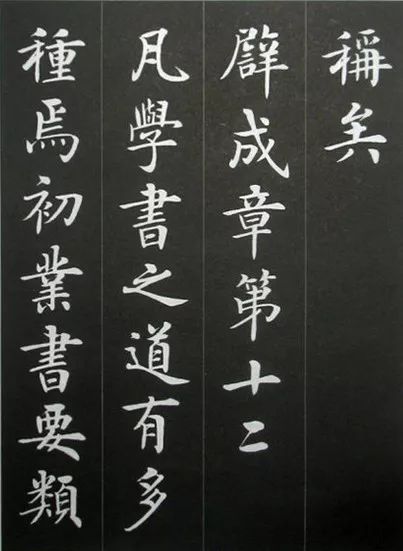 稱矣
譬成章第十二
凡學書之道有多
種焉初業書要類